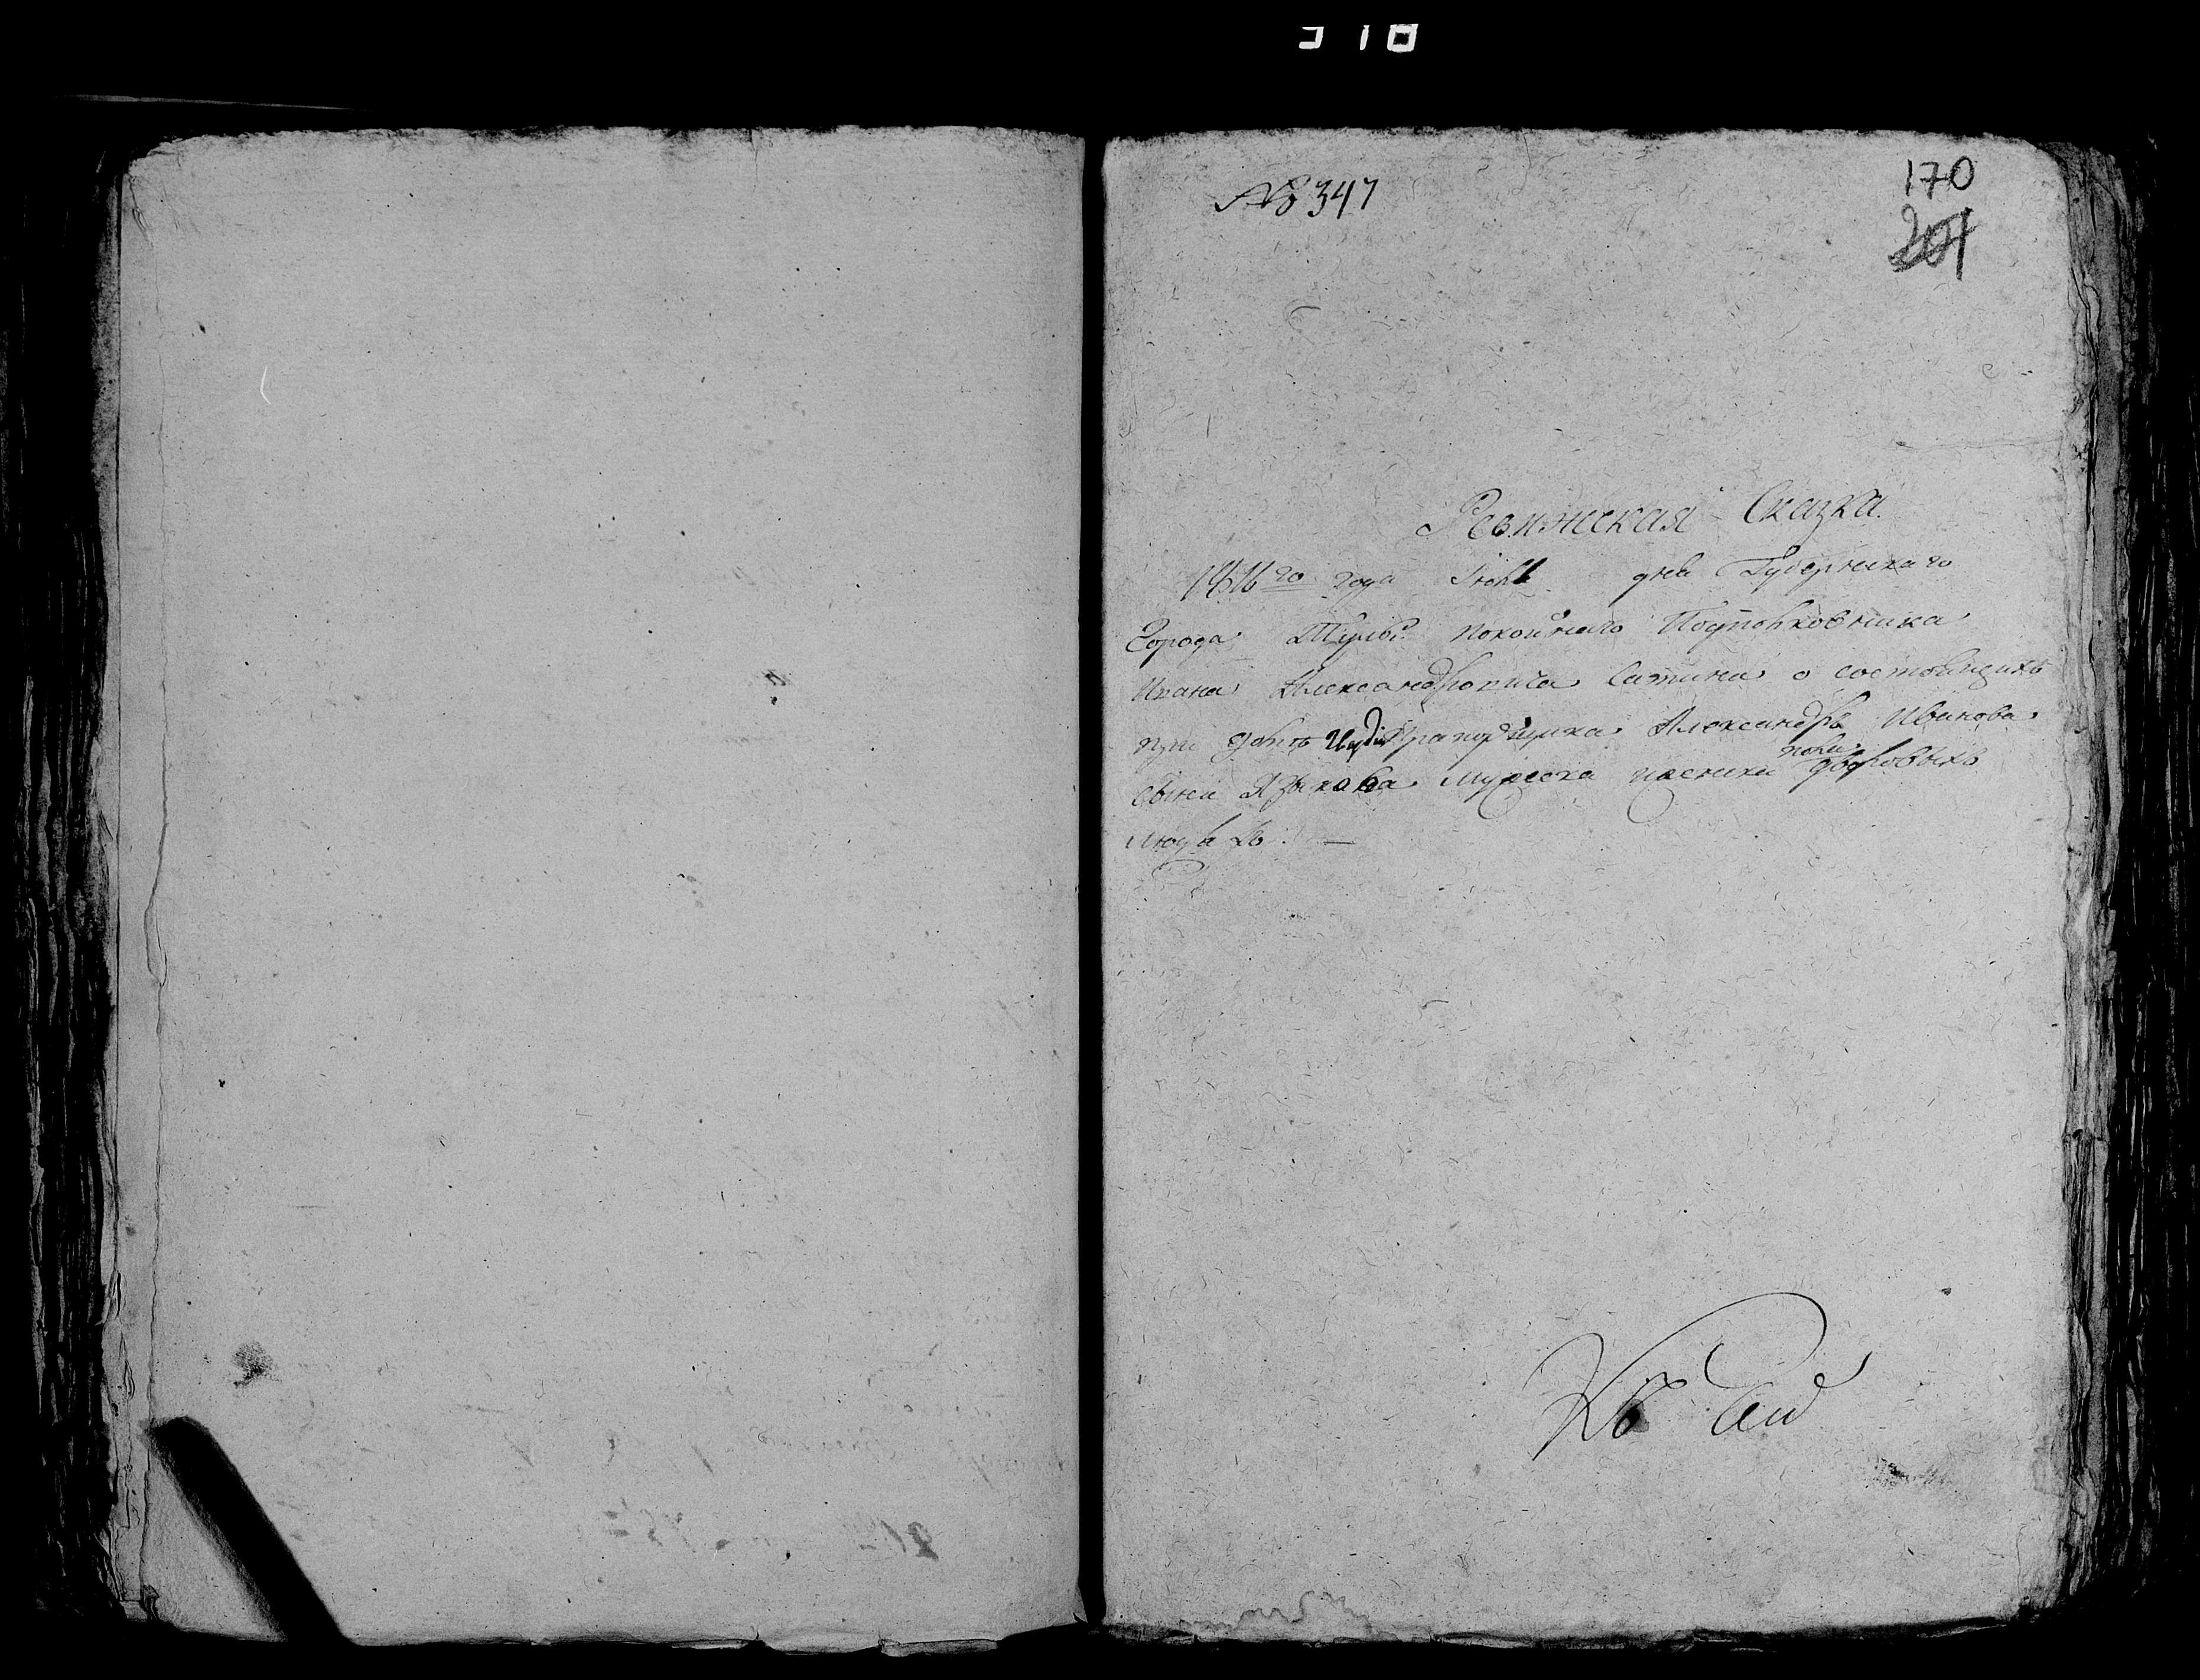 318
№ 347
170
201
Ревижская Сказка.
1816го года Июня дня Губернскаго
Города Тулы покойнаго Подполковника
Ивана Александровича Сатина о состоящихъ
при Прапорщика Александръ Иванова
сына Языкова мужеска и женска пола дворовыхъ
людѣхъ. —
Къ